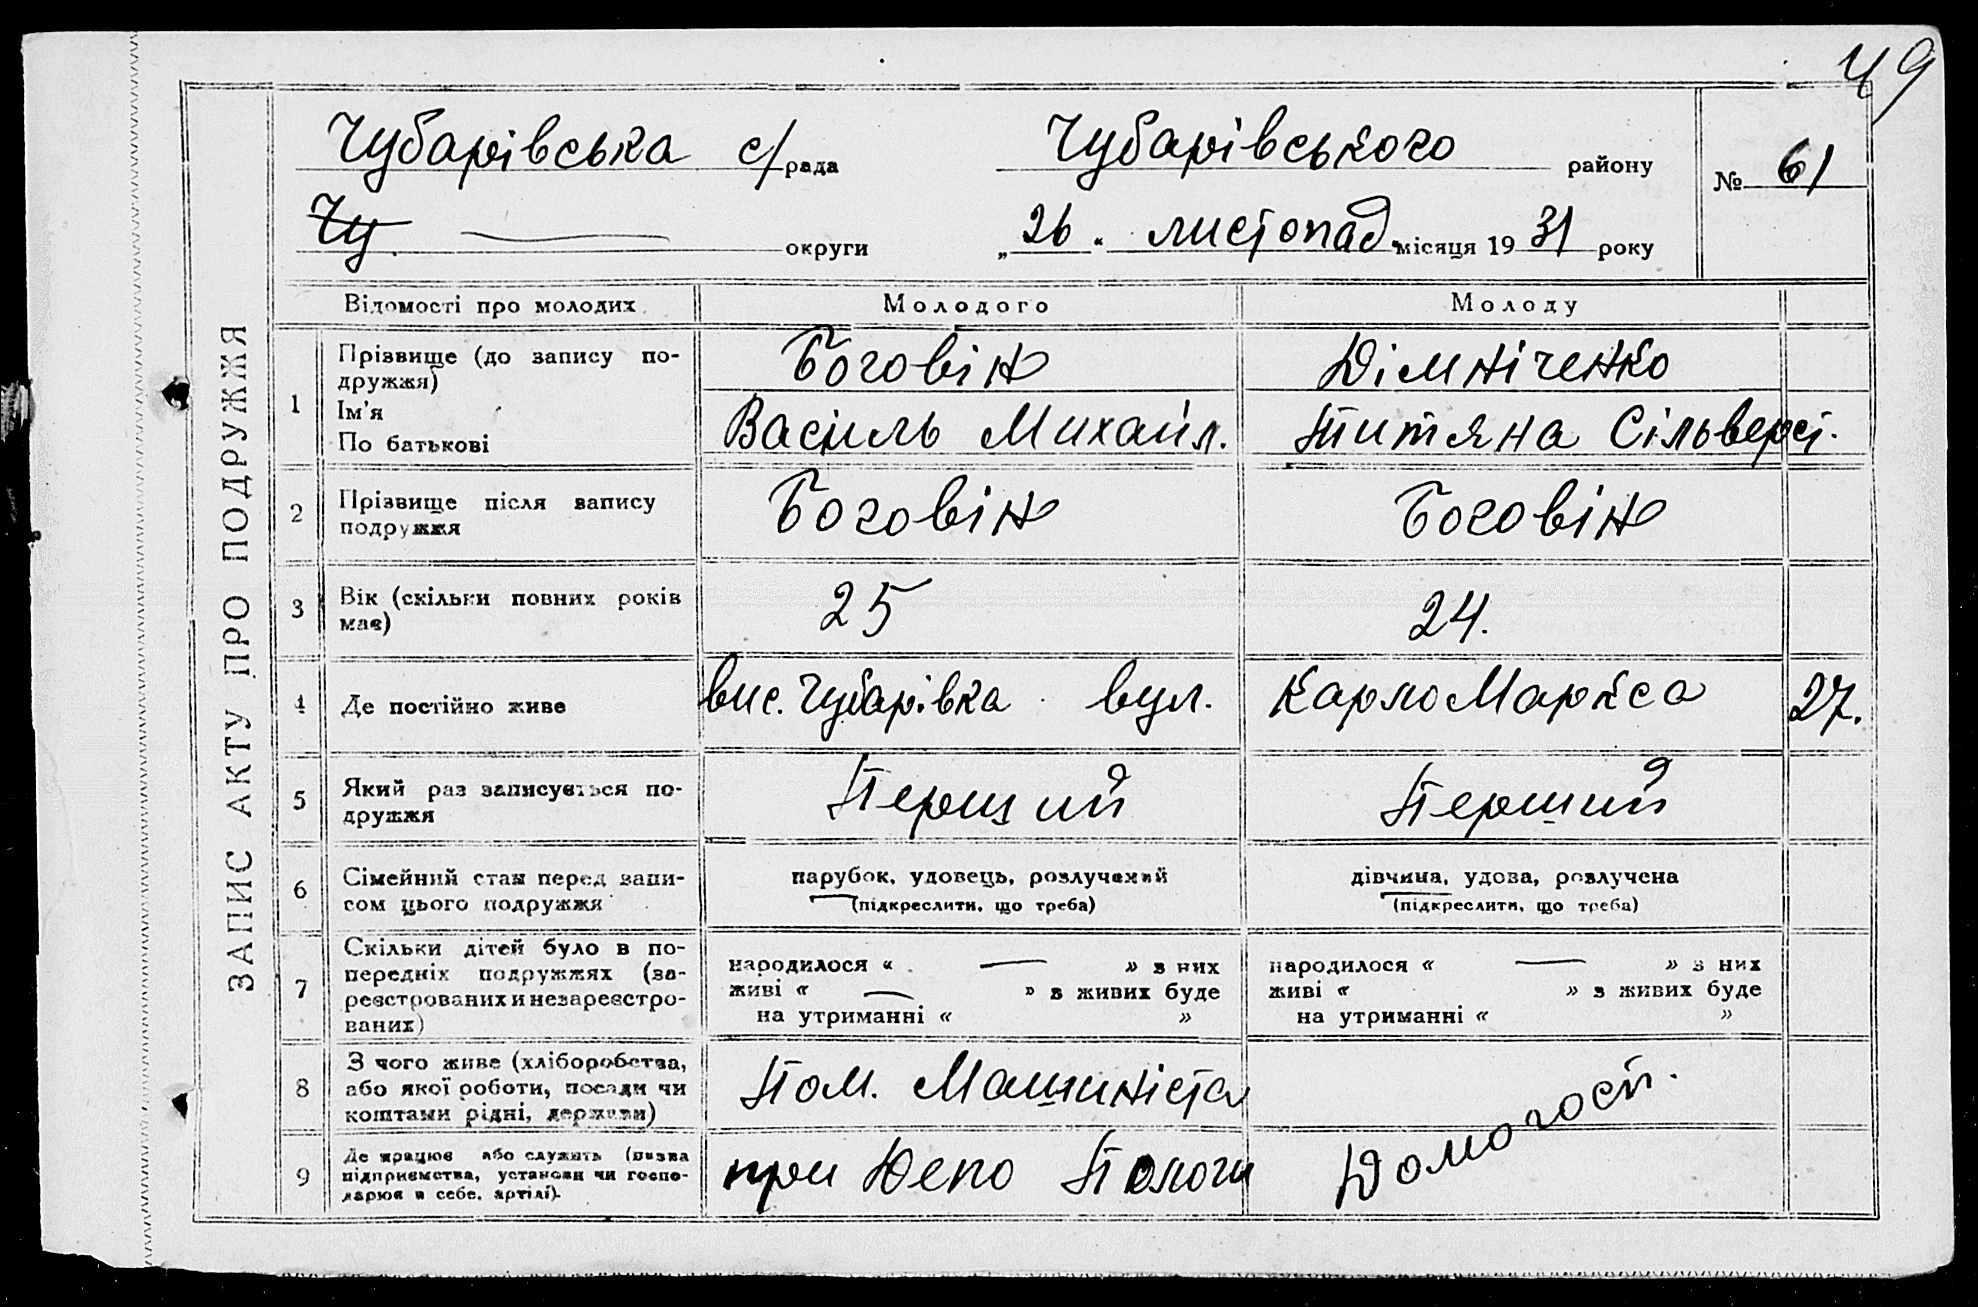 49
Чубарівська с/рада Чубарівського району № 61
Чу округи „26“ листопад. місяця 1931 року
ЗАПИС АКТУ ПРО ПОДРУЖЖЯ
Відомості про молодих Молодого Молоду
1 Прізвище (до запису по- Боговін Дімніченко
дружжя)
Ім'я Василь Михайл. Титяна Сільверст.
По батькові
2 Прізвище після запису Боговін Боговін
подружжя
3 Вік (скільки повних років 25 24.
має)
4 Де постійно живе вис. Чубарівка вул. Карло Маркса 27.
5 Який раз записується по- Перший Перший
дружжя
6 Сімейний стан перед запи- парубок, удовець, розлучений дівчина, удова, розлучена
сом цього подружжя (підкреслити, що треба) (підкреслити, що треба)
7 Скільки дітей було в по- народилося « — » з них народилося « — » з них
передніх подружжях (за- живі « — » з живих буде живі « » з живих буде
реєстрованих и незареєстро- на утриманні « » на утриманні « »
ваних)
8 З чого живе (хліборобства, Пом. Машиніста Домогосп.
або якої роботи, посади чи
коштами рідні, держави)
9 Де працює або служить (назва при Депо Пологи
підприємства, установи чи госпо-
дарює в себе, артілі).